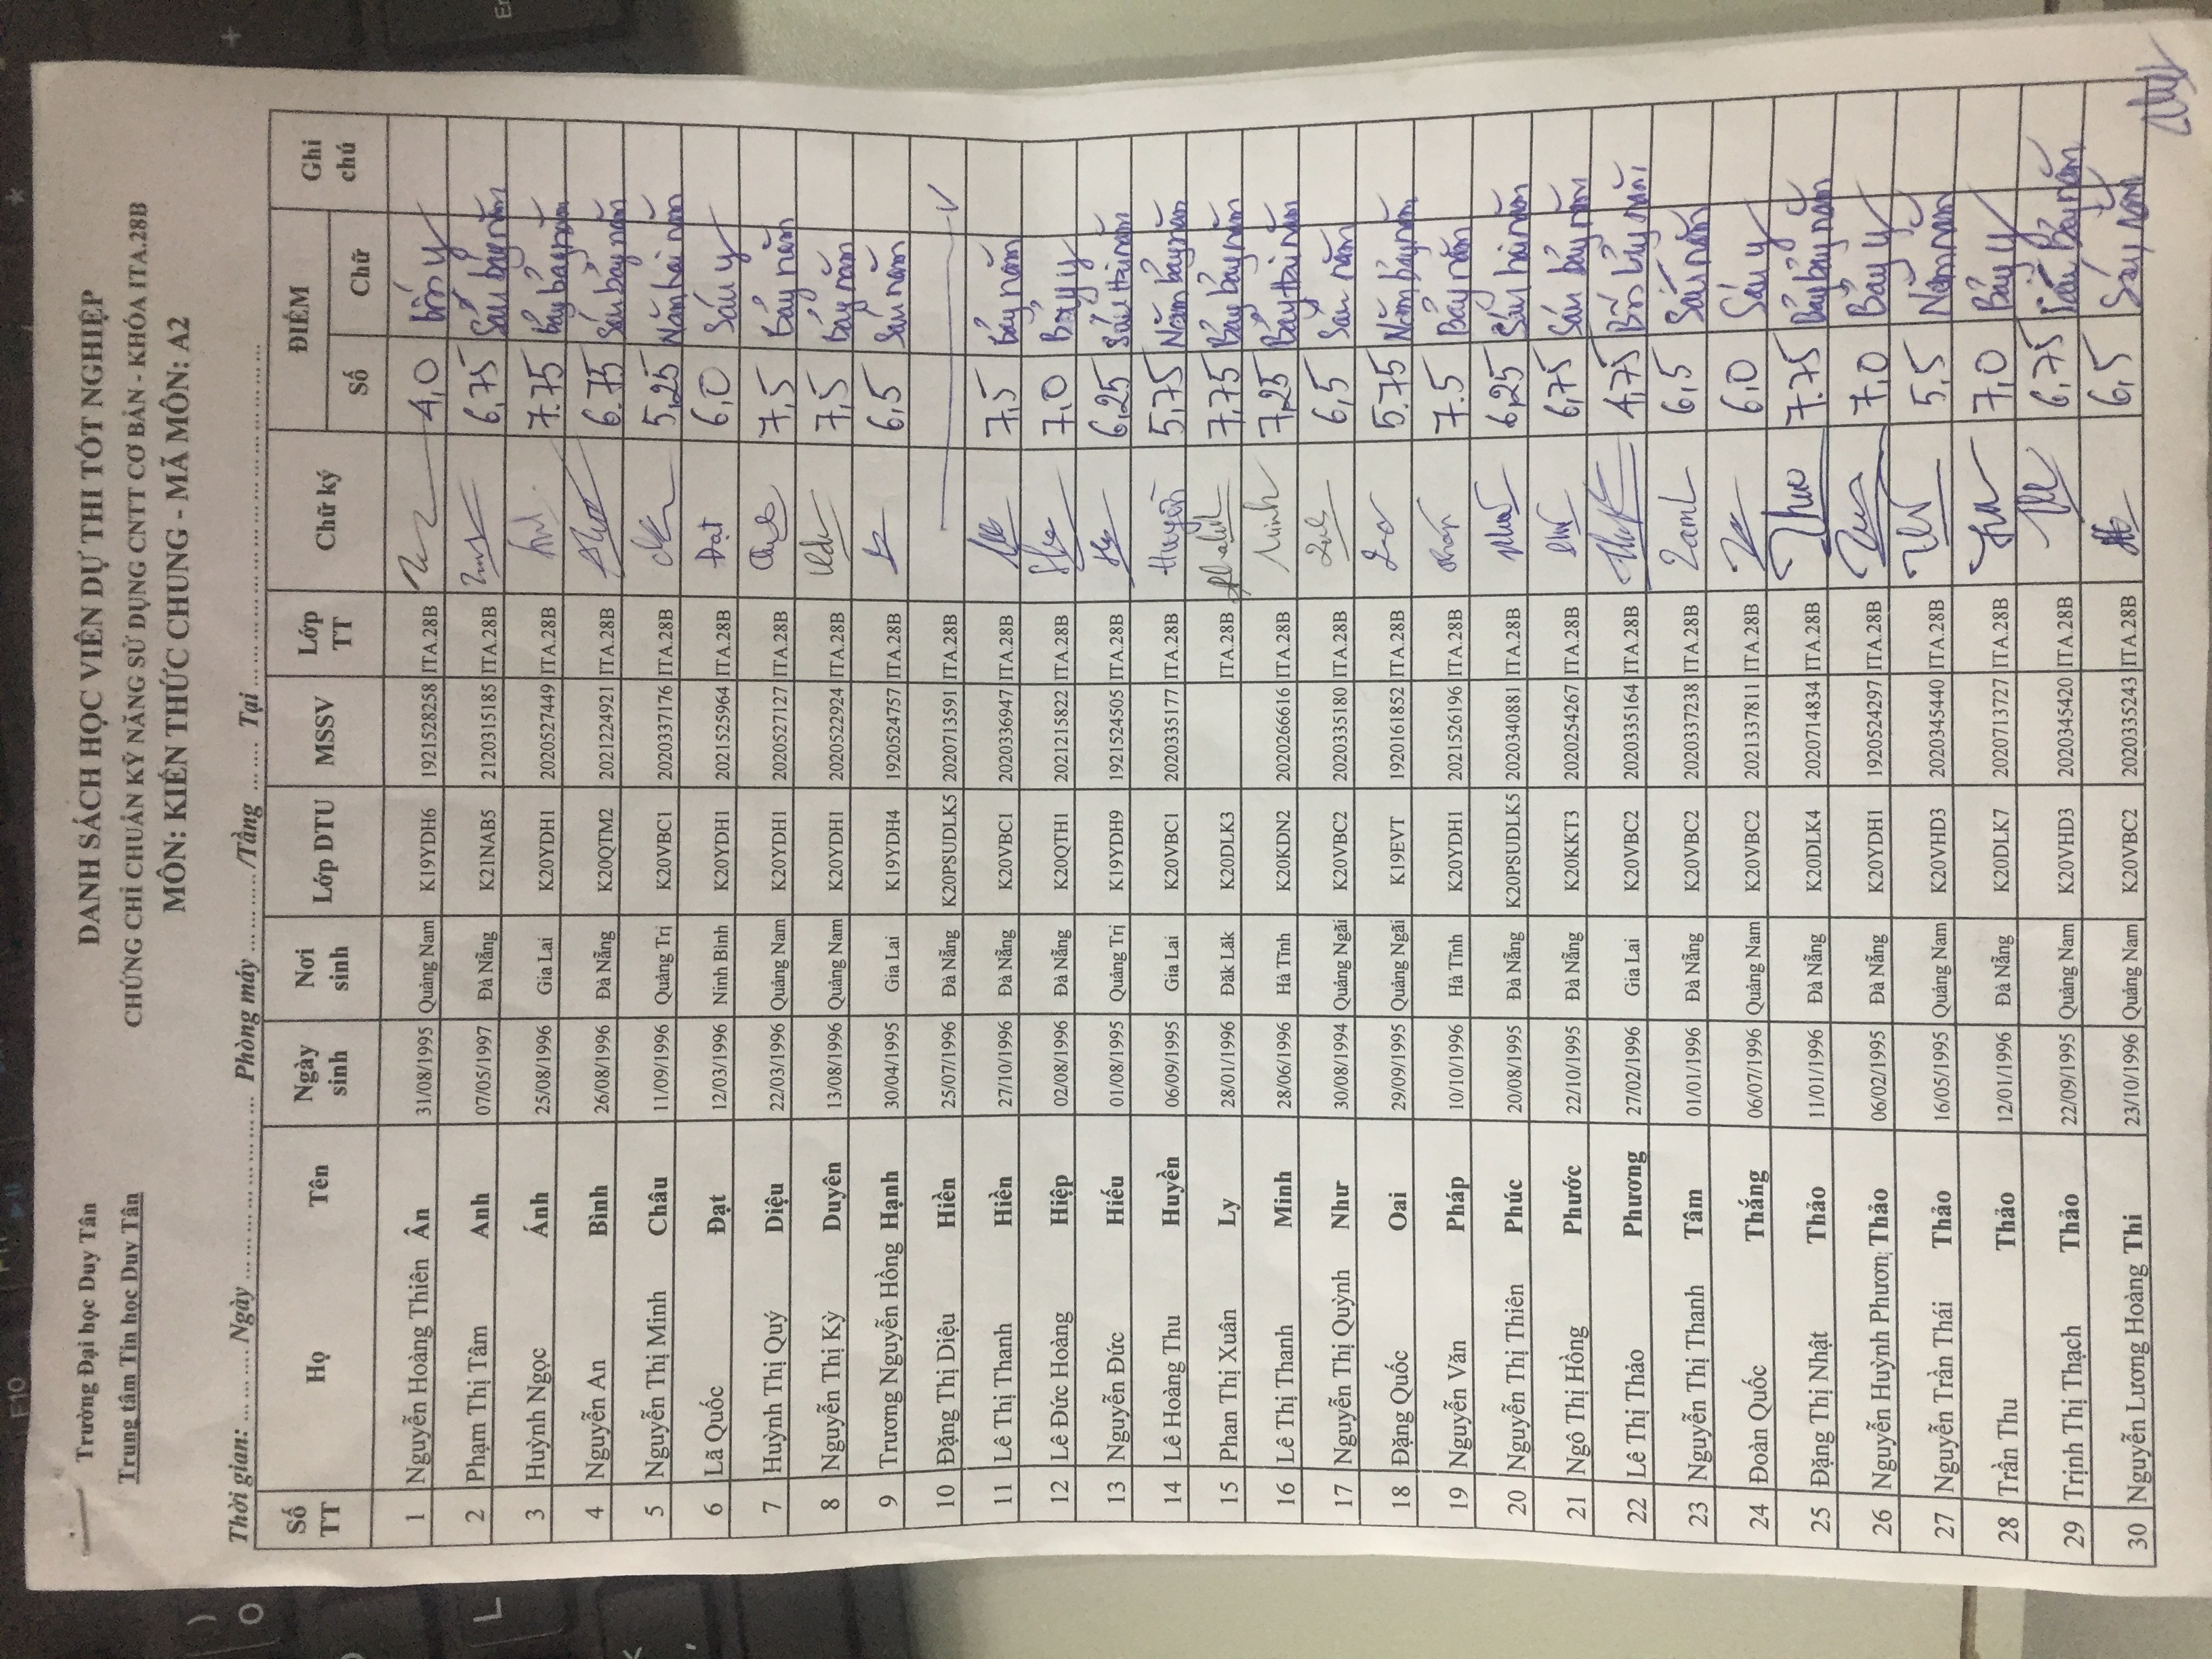 Trường Đại học Duy Tân
Trung tâm Tin học Duy Tân
DANH SÁCH HỌC VIÊN DỰ THI TỐT NGHIỆP
CHỨNG CHỈ CHUẨN KỸ NĂNG SỬ DỤNG CNTT CƠ BẢN - KHÓA ITA.28B
MÔN: KIẾN THỨC CHUNG - MÃ MÔN: A2
Thời gian: ... ... Ngày ... ... ... ... ... ... Phòng máy ... ... ... /Tầng ... ... Tại ... ... ... ... ... ... ... ...
Số TT Họ Tên Ngày sinh Nơi sinh Lớp DTU MSSV Lớp TT Chữ ký ĐIỂM Số Chữ Ghi chú
1 Nguyễn Hoàng Thiên Ân 31/08/1995 Quảng Nam K19YDH6 1921528258 ITA.28B 4,0 bốn y
2 Phạm Thị Tâm Anh 07/05/1997 Đà Nẵng K21NAB5 2120315185 ITA.28B 6,75 Sáu bảy năm
3 Huỳnh Ngọc Ánh 25/08/1996 Gia Lai K20YDH1 2020527449 ITA.28B 7.75 Bảy bảy năm
4 Nguyễn An Bình 26/08/1996 Đà Nẵng K20QTM2 2021224921 ITA.28B 6.75 Sáu bảy năm
5 Nguyễn Thị Minh Châu 11/09/1996 Quảng Trị K20VBC1 2020337176 ITA.28B 5,25 Năm hai năm
6 Lã Quốc Đạt 12/03/1996 Ninh Bình K20YDH1 2021525964 ITA.28B Đạt 6,0 Sáu y
7 Huỳnh Thị Quý Diệu 22/03/1996 Quảng Nam K20YDH1 2020527127 ITA.28B 7,5 Bảy năm
8 Nguyễn Thị Kỳ Duyên 13/08/1996 Quảng Nam K20YDH1 2020522924 ITA.28B 7,5 Bảy năm
9 Trương Nguyễn Hồng Hạnh 30/04/1995 Gia Lai K19YDH4 1920524757 ITA.28B 6,5 Sáu năm
10 Đặng Thị Diệu Hiền 25/07/1996 Đà Nẵng K20PSUDLK5 2020713591 ITA.28B
11 Lê Thị Thanh Hiền 27/10/1996 Đà Nẵng K20VBC1 2020336947 ITA.28B 7,5 Bảy năm
12 Lê Đức Hoàng Hiệp 02/08/1996 Đà Nẵng K20QTH1 2021215822 ITA.28B 7,0 Bảy y
13 Nguyễn Đức Hiếu 01/08/1995 Quảng Trị K19YDH9 1921524505 ITA.28B 6,25 Sáu Hai năm
14 Lê Hoàng Thu Huyền 06/09/1995 Gia Lai K20VBC1 2020335177 ITA.28B Huyền 5,75 Năm bảy năm
15 Phan Thị Xuân Ly 28/01/1996 Đăk Lăk K20DLK3 ITA.28B 7,75 Bảy bảy năm
16 Lê Thị Thanh Minh 28/06/1996 Hà Tĩnh K20KDN2 2020266616 ITA.28B Minh 7,25 Bảy Hai năm
17 Nguyễn Thị Quỳnh Như 30/08/1994 Quảng Ngãi K20VBC2 2020335180 ITA.28B 6,5 Sáu năm
18 Đặng Quốc Oai 29/09/1995 Quảng Ngãi K19EVT 1920161852 ITA.28B 5.75 Năm bảy năm
19 Nguyễn Văn Pháp 10/10/1996 Hà Tĩnh K20YDH1 2021526196 ITA.28B 7.5 Bảy năm
20 Nguyễn Thị Thiên Phúc 20/08/1995 Đà Nẵng K20PSUDLK5 2020340881 ITA.28B 6,25 Sáu hai năm
21 Ngô Thị Hồng Phước 22/10/1995 Đà Nẵng K20KKT3 2020254267 ITA.28B 6,75 Sáu bảy năm
22 Lê Thị Thảo Phương 27/02/1996 Gia Lai K20VBC2 2020335164 ITA.28B 4,75 Bốn bảy năm
23 Nguyễn Thị Thanh Tâm 01/01/1996 Đà Nẵng K20VBC2 2020337238 ITA.28B 6,5 Sáu năm
24 Đoàn Quốc Thắng 06/07/1996 Quảng Nam K20VBC2 2021337811 ITA.28B 6,0 Sáu y
25 Đặng Thị Nhật Thảo 11/01/1996 Đà Nẵng K20DLK4 2020714834 ITA.28B Thảo 7.75 Bảy bảy năm
26 Nguyễn Huỳnh Phươn Thảo 06/02/1995 Đà Nẵng K20YDH1 1920524297 ITA.28B 7,0 Bảy y
27 Nguyễn Trần Thái Thảo 16/05/1995 Quảng Nam K20VHD3 2020345440 ITA.28B 5,5 Năm năm
28 Trần Thu Thảo 12/01/1996 Đà Nẵng K20DLK7 2020713727 ITA.28B 7,0 Bảy y
29 Trịnh Thị Thạch Thảo 22/09/1995 Quảng Nam K20VHD3 2020345420 ITA.28B 6,75 Sáu Bảy năm
30 Nguyễn Lương Hoàng Thi 23/10/1996 Quảng Nam K20VBC2 2020335243 ITA.28B 6,5 Sáu năm
F10
O
L